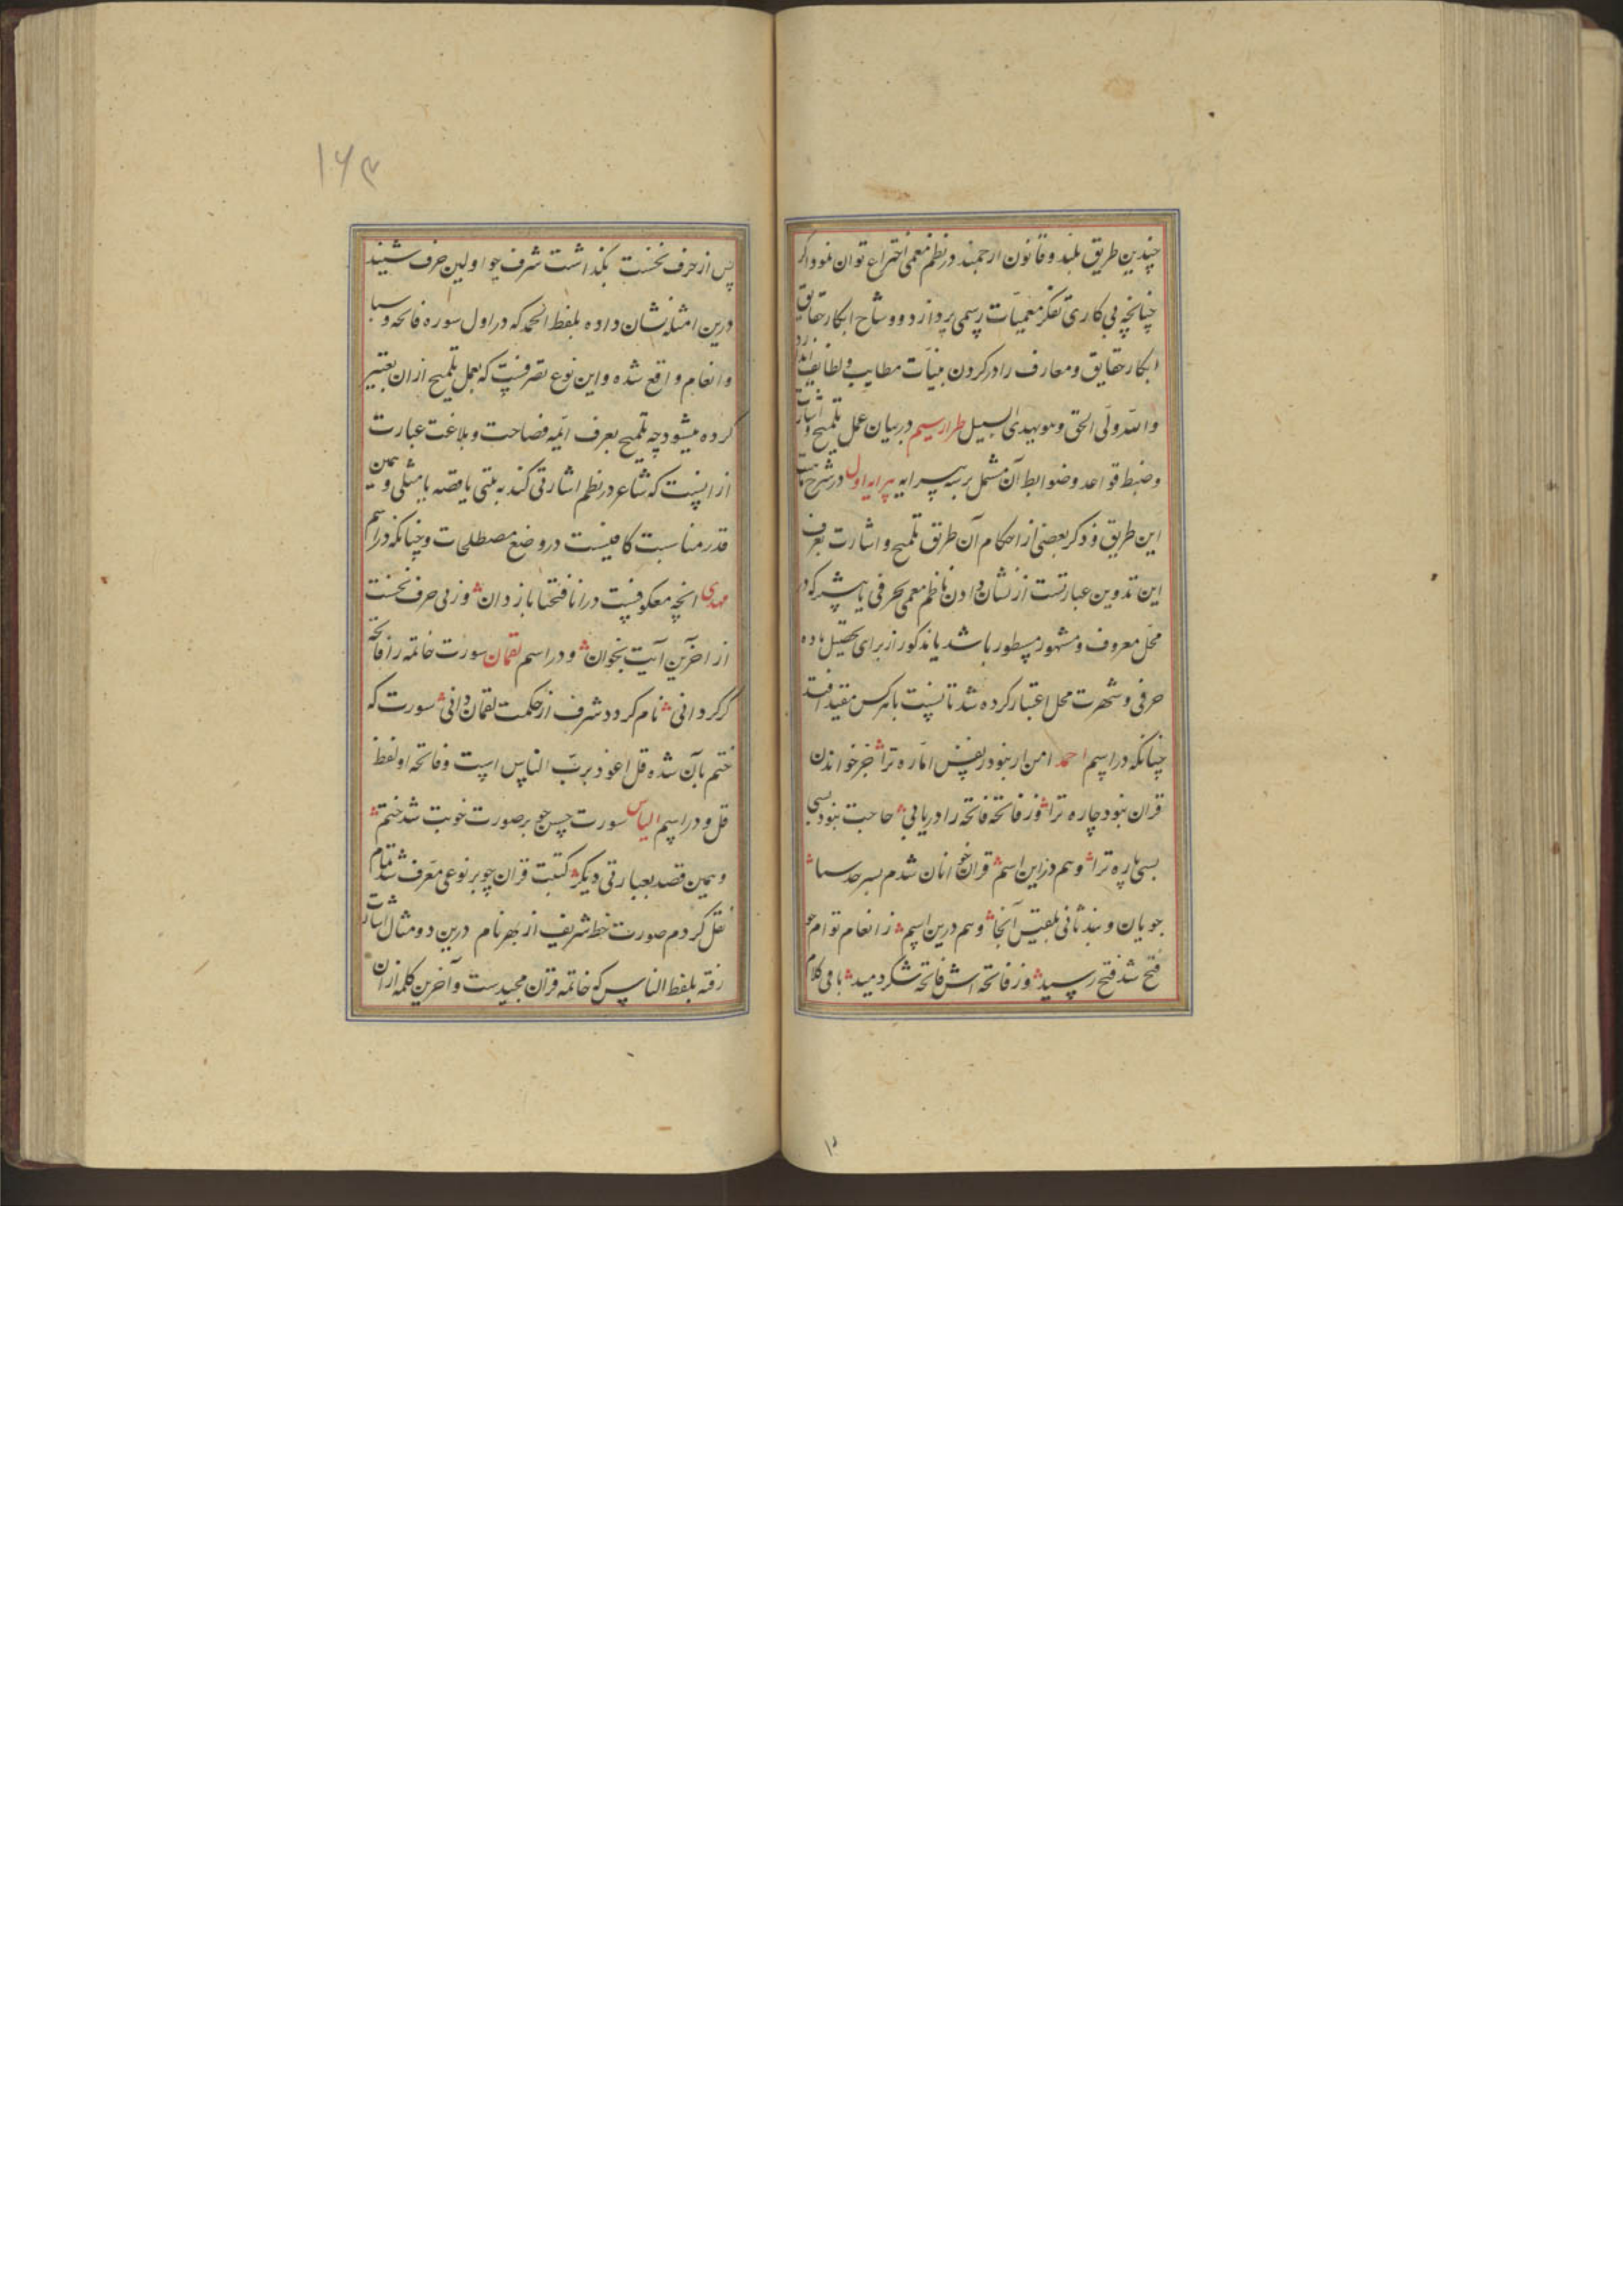 چندین طریق بلند و قانون ارجمند در نظم معمی اختراع توان نمود اگر
چنانچه بی کاری تفکر معمیات رسمی پردازد و وشاح ابکار حقایق
ابکار حقایق و معارف را در کردن بنیات مطایب و لطایف
والله ولی الحق و هو یهدی السبیل طراز سیم در بیان عمل تلمیح و اشارت
و ضبط قواعد و ضوابط آن مشمل بر سه پیرایه پیرایه اول در شرح
این طریق و ذکر بعضی از احکام آن طرق تلمیح و اشارت بعرف
این تدوین عبارتست از نشان دادن ناظم معمی بحرفی یا بیشتر که در
محل معروف و مشهور مسطور باشد یا مذکور از برای تحصیل ماده
حرفی و شهرت محل اعتبار کرده شد تا نسبت با هر کس مفید افتد
چنانکه در اسم احمد امن ار نبود ز نفس اماره ترا جز خواندن
قران نبود چاره ترا وز فاتحه فاتحه را دریابی حاجت نبود بسی
بسی پاره ترا و هم در این اسم قران خوانان شدم بسر حد سبا
جویان و بند ثانی بلقیس آنجا و هم درین اسم ز انعام تو ام چو
فتح شد فتح رسید وز فاتحه اش فاتحه شکر دمید باقی کلام
۱۶۳
پس از حرف نخست بگذاشت شرف چو اولین حرف شنید
درین امثله نشان داده بلفظ الحمد که در اول سوره فاتحه و سبا
و انعام واقع شده و این نوع تصرفیست که بعمل تلمیح از ان تعبیر
کرده میشود چه تلمیح بعرف ائمه فصاحت و بلاغت عبارت
از اینست که شاعر در نظم اشارتی کند به بیتی یا قصه یا مثلی و همین
قدر مناسبت کافیست در وضع مصطلحات و چنانکه در اسم
مهدی انچه معکوفیست در انا فتحنا باز دان وز پی حرف نخست
از اخرین آیت بخوان و در اسم لقمان سورت خاتمه را فاتحه
گر گردانی نام گردد شرف از حکمت لقمان دانی سورت که
ختم بآن شده قل اعوذ برب الناس است و فاتحه او لفظ
قل و در اسم الیاس سورت حسن چو بر صورت خوبت شد ختم
و همین قصد بعبارتی دیگر کتبت قران چو بر نوعی معرف شد تمام
نقل کردم صورت خط شریف از بهر نام درین دو مثال اشارت
رفته بلفظ الناس که خاتمه قران مجیدست و آخرین کلمه ازان